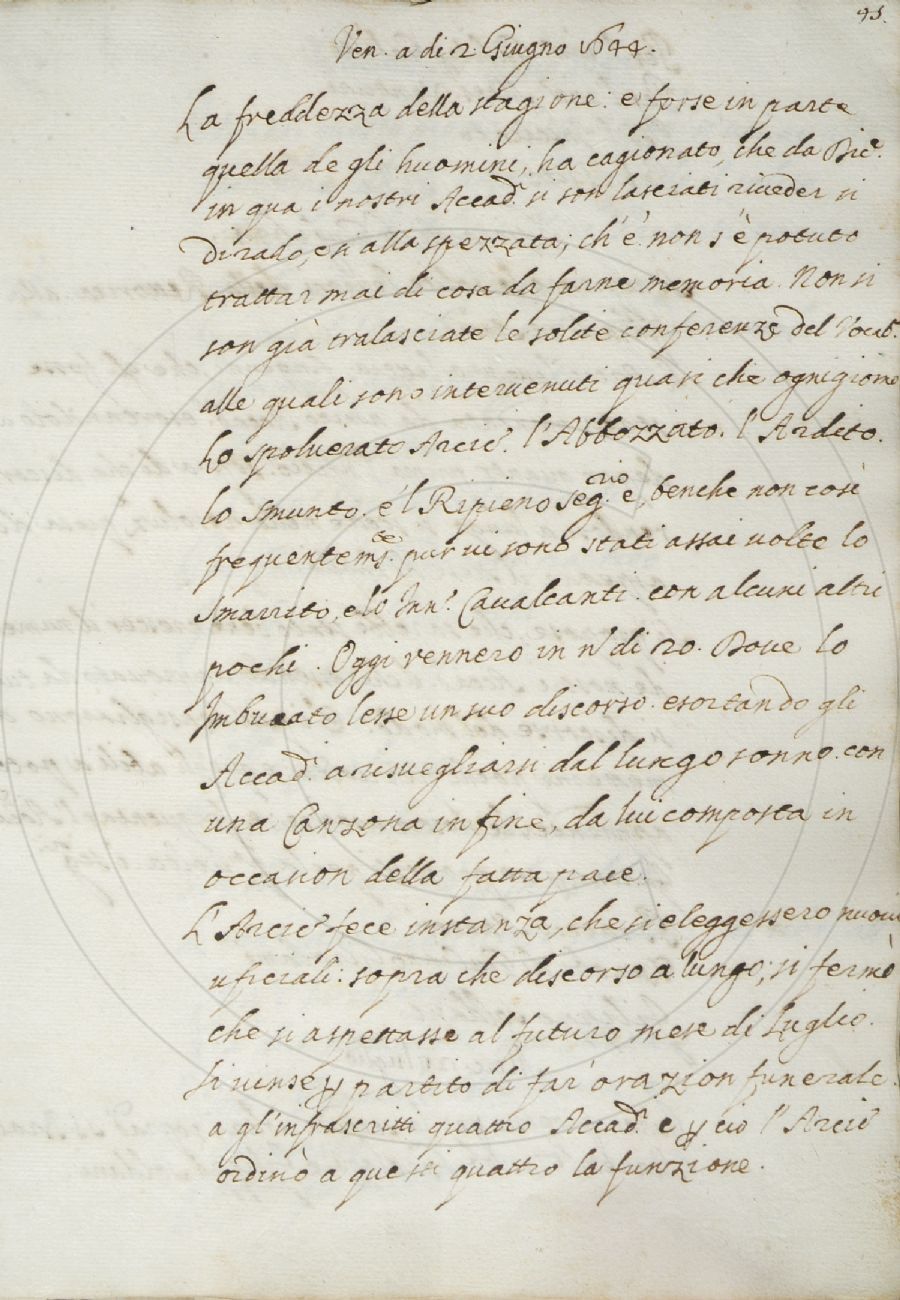 45.
Ven. a di 2 Giugno 1644.
La freddezza della stagione: e forse in parte
quella de gli huomini, ha cagionato, che da Dic.e
in qua i nostri Accad.i si son lasciati riveder si
di rado, e si alla spezzata; ch'è non s'è potuto
trattar mai di cosa da farne memoria. Non si
son già tralasciate le solite conferenze del Vocab.
alle quali sono intervenuti quasi che ogni giorno
Lo spolverato Arcic.o l'Abbozzato. l'Ardito.
lo Smunto. e'l Ripieno Seg.rio e, benche non così
frequentem.te pur vi sono stati assai volte lo
Smarrito, e lo Inn.o Cavalcanti. con alcuni altri
pochi. Oggi vennero in n.o di 20. Dove lo
Imbucato lesse un suo discorso. esortando gli
Accad.i a risvegliarsi dal lungo sonno. con
una Canzona in fine, da lui composta in
occasion della fatta pace.
L'Arcic.o fece instanza, che si eleggessero nuovi
uficiali: sopra che discorso a lungo; si fermò
che si aspettasse al futuro mese di Luglio.
Si vinse p partito di far' orazion funerale.
a gl'infrascritti quattro Accad.i e p ciò l'Arcic.o
ordinò a questi quattro la funzione.